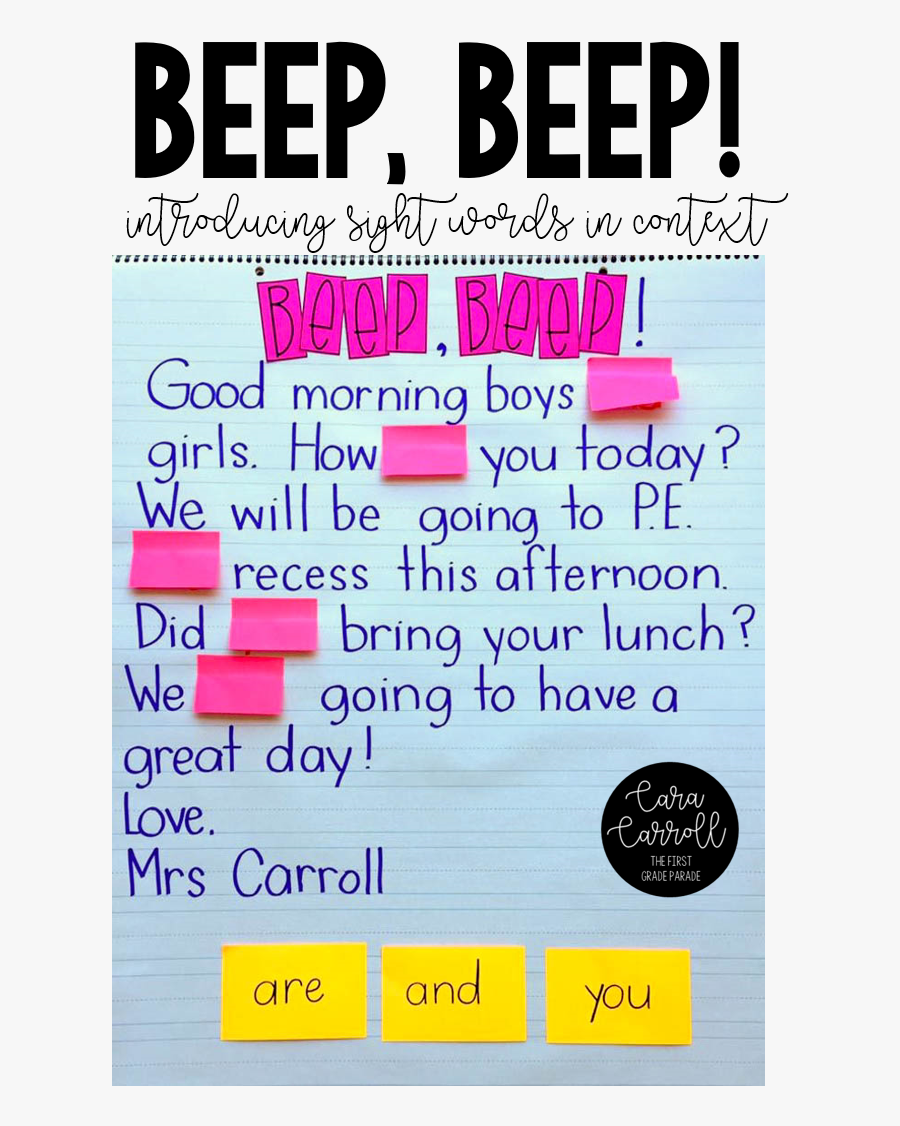 BEEP, BEEP!
introducing sight words in context
BeeP, BeeP!
Good morning boys
girls. How you today?
We will be going to P.E.
recess this afternoon.
Did bring your lunch?
We going to have a
great day!
Love.
Mrs Carroll
Cara
Carroll
THE FIRST
GRADE PARADE
are and you